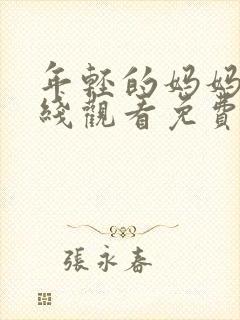 年輕的媽媽
綫觀看免費
張永春